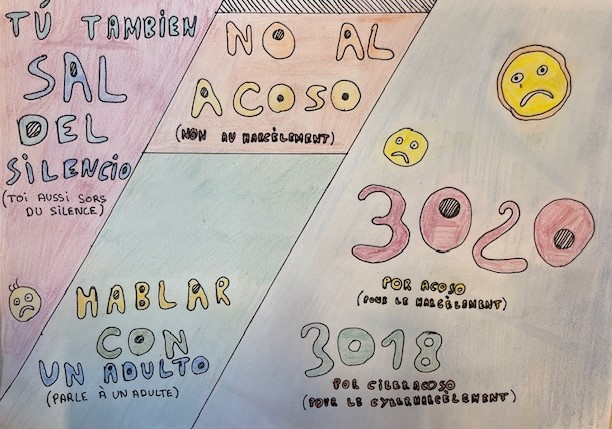 TÚ TAMBIEN
SAL
DEL
SILENCIO
(TOI AUSSI SORS
DU SILENCE)
NO AL
ACOSO
(NON AU HARCÈLEMENT)
HABLAR
CON
UN ADULTO
(PARLE À UN ADULTE)
3020
POR ACOSO
(POUR LE HARCÈLEMENT)
3018
POR CIBERACOSO
(POUR LE CYBERHARCÈLEMENT)